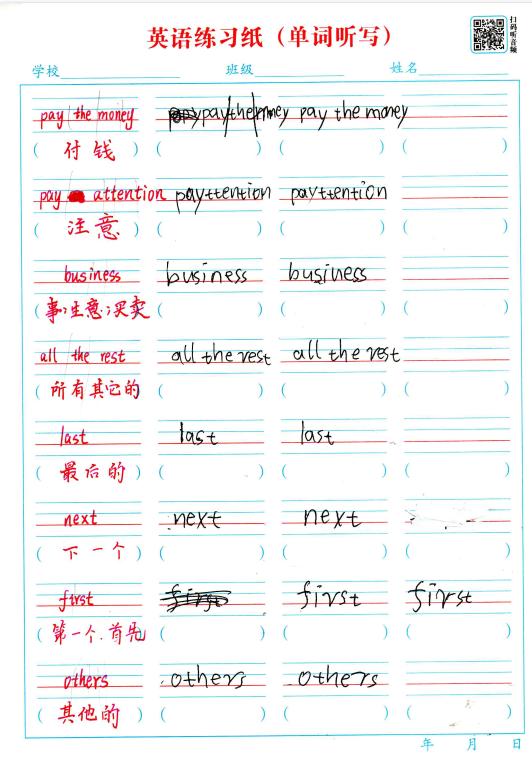 英语练习纸（单词听写）
扫码听音频
学校 班级 姓名
pay the money pay the money pay the money
( 付钱 ) ( ) ( ) ( )
pay attention payttention payttention
( 注意 ) ( ) ( ) ( )
business business business
( 事;生意;买卖 ) ( ) ( ) ( )
all the rest all the rest all the rest
( 所有其它的 ) ( ) ( ) ( )
last last last
( 最后的 ) ( ) ( ) ( )
next next next
( 下一个 ) ( ) ( ) ( )
first first first first
( 第一个.首先 ) ( ) ( ) ( )
others others others
( 其他的 ) ( ) ( ) ( )
年 月 日